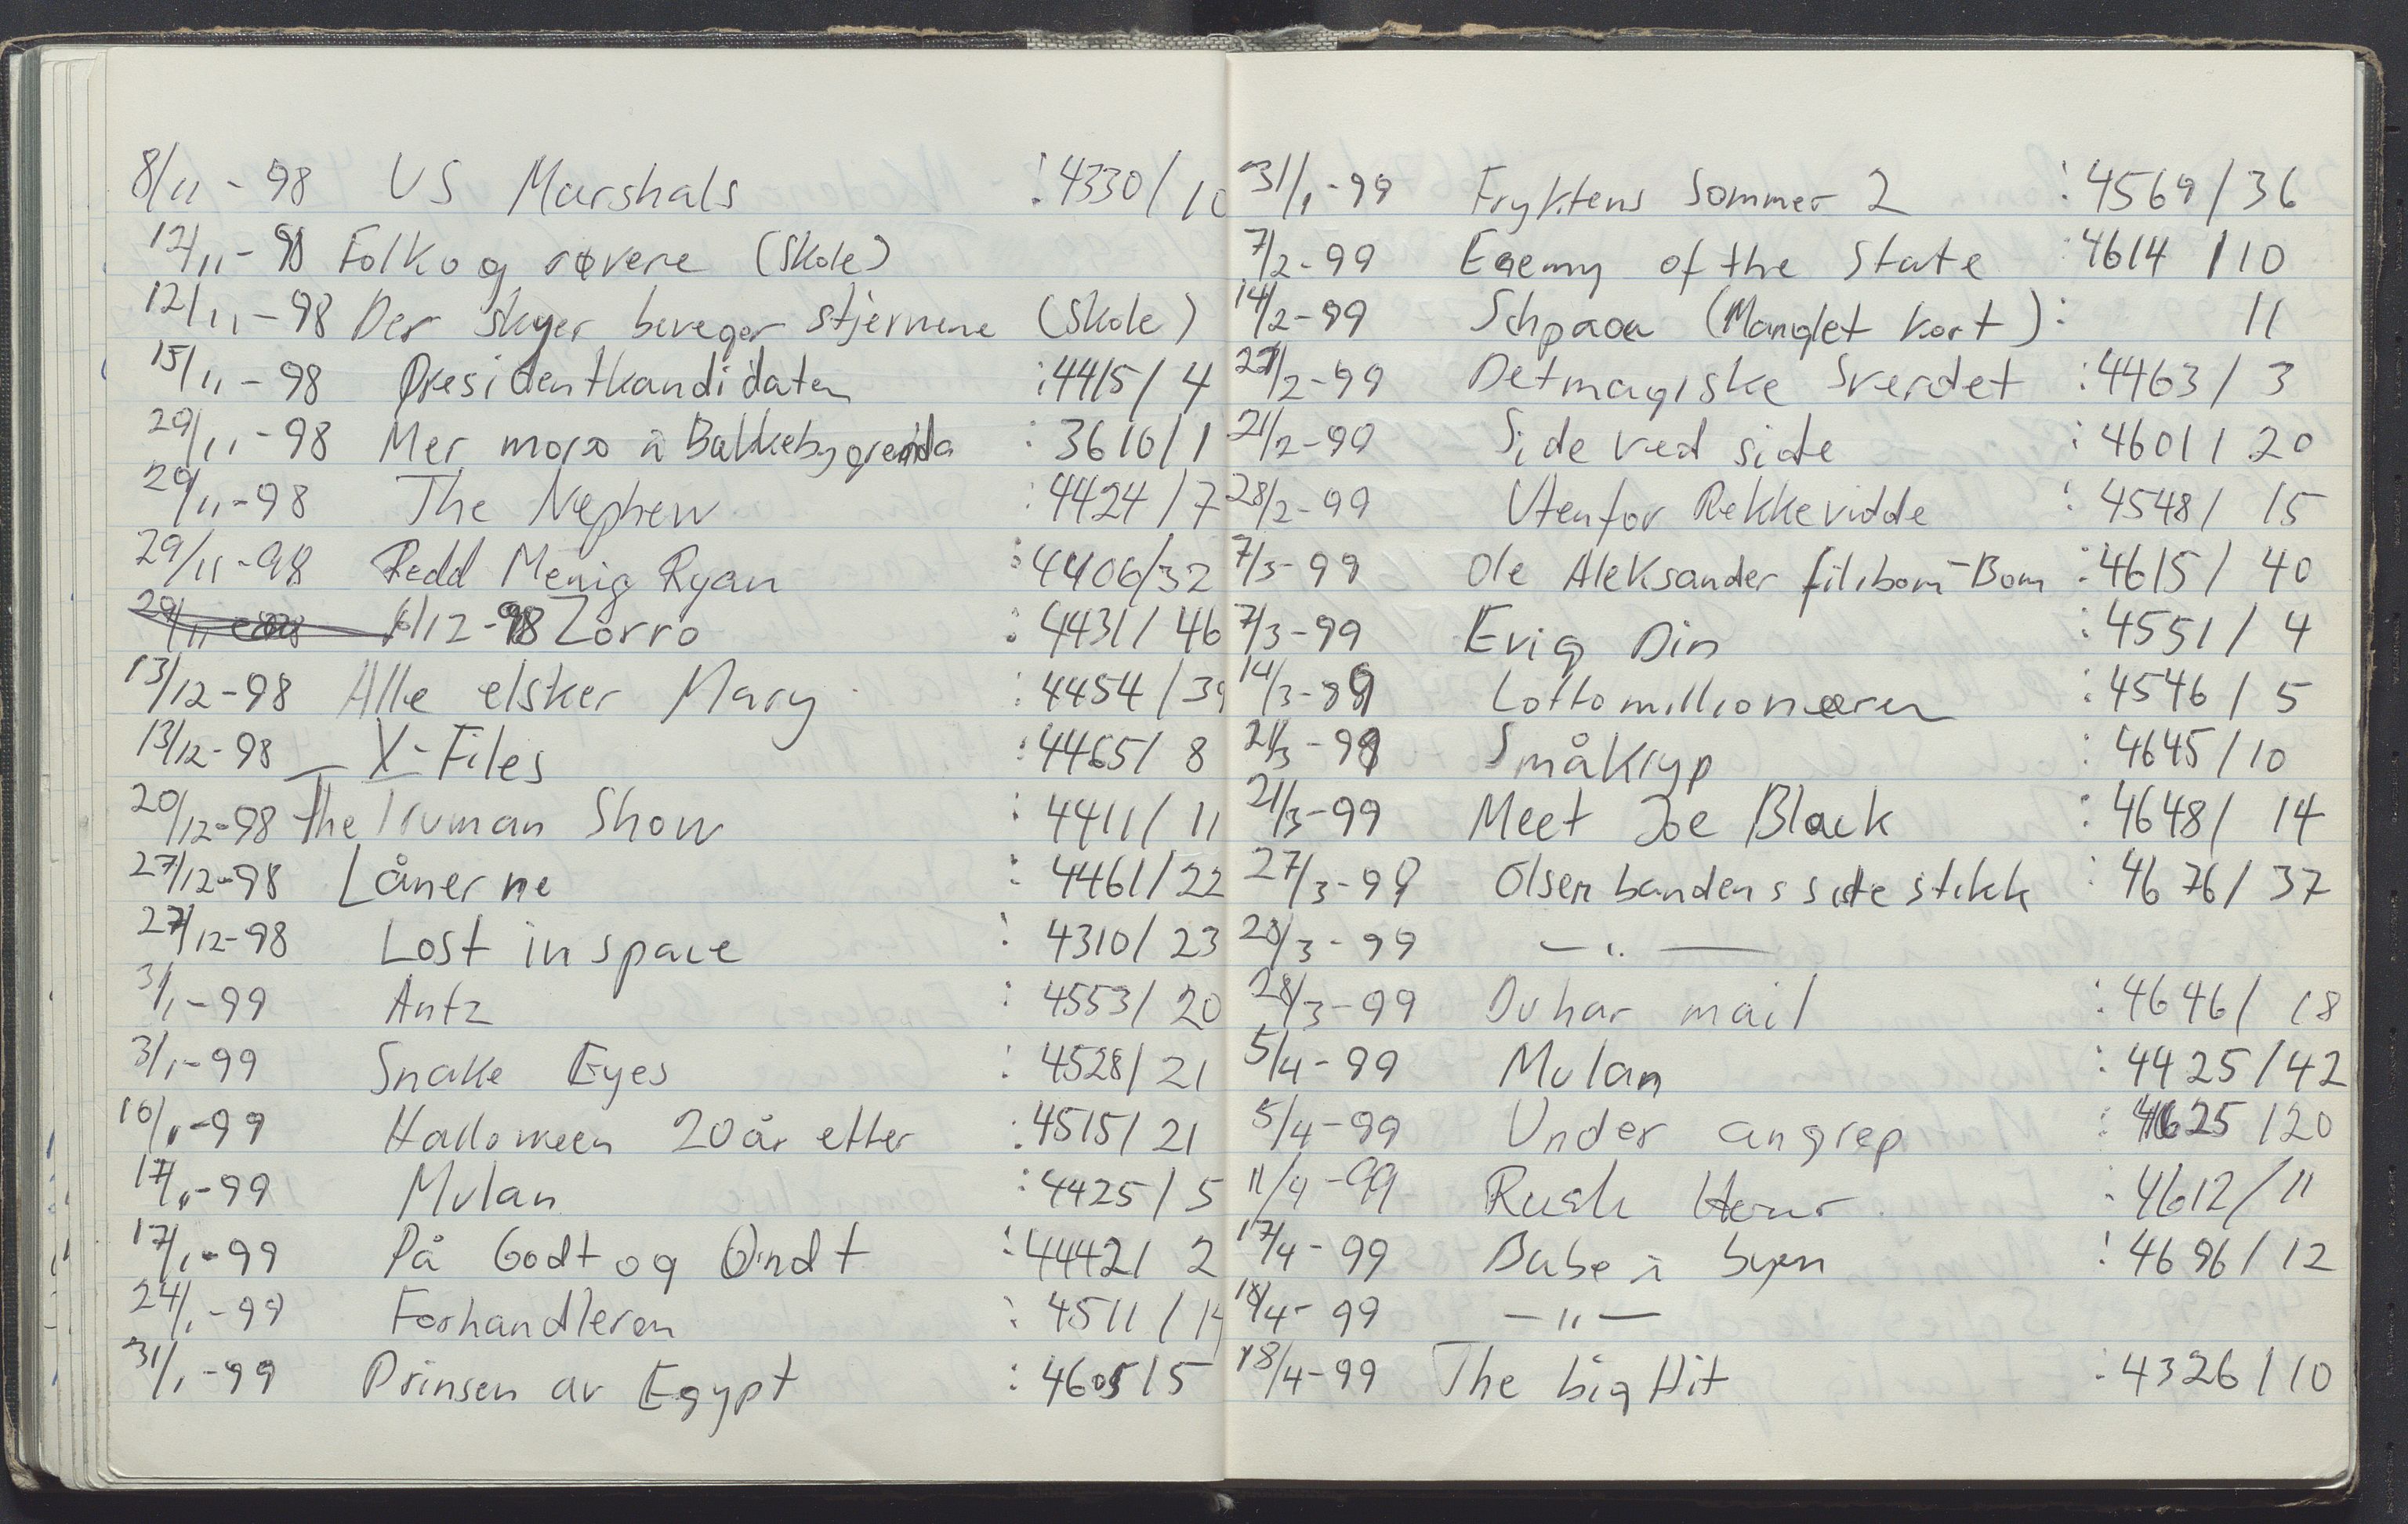 8/11-98 US Marshals :4330/10
12/11-98 Folk og røvere (Skole)
12/11-98 Der skyer beveger stjernene (Skole)
15/11-98 Presidentkandidaten :4415/4
29/11-98 Mer moro i Bakkebygrenda :3610/1
29/11-98 The Nephew :4424/7
29/11-98 Redd Menig Ryan :4406/32
29/11 6/12-98 Zorro :4431/46
13/12-98 Alle elsker Mary :4454/39
13/12-98 X-Files :4465/8
20/12-98 The Truman Show :4411/11
27/12-98 Lånerne :4461/22
27/12-98 Lost in space :4310/23
3/1-99 Antz :4553/20
3/1-99 Snake Eyes :4528/21
10/1-99 Halloween 20 år etter :4515/21
17/1-99 Mulan :4425/5
17/1-99 På Godt og Ondt :4442/2
24/1-99 Forhandleren :4511/14
31/1-99 Prinsen av Egypt :4605/5
31/1-99 Fryktens Sommer 2 :4569/36
7/2-99 Enemy of the State :4614/10
14/2-99 Schpaaa (Manglet kort): 11
21/2-99 Det magiske Sverdet :4463/3
21/2-99 Side ved side :4601/20
28/2-99 Utenfor Rekkevidde :4548/15
7/3-99 Ole Aleksander filibom-Bom :4615/40
7/3-99 Evig Din :4551/4
14/3-99 Lottomillionæren :4546/5
21/3-99 Småkryp :4645/10
21/3-99 Meet Joe Black :4648/14
27/3-99 Olsenbandens siste stikk :4676/37
28/3-99 —"—
28/3-99 Du har mail :4646/18
5/4-99 Mulan :4425/42
5/4-99 Under angrep :4625/20
11/4-99 Rush Hour :4612/11
17/4-99 Babe i byen :4696/12
18/4-99 —"—
18/4-99 The big Hit :4326/10